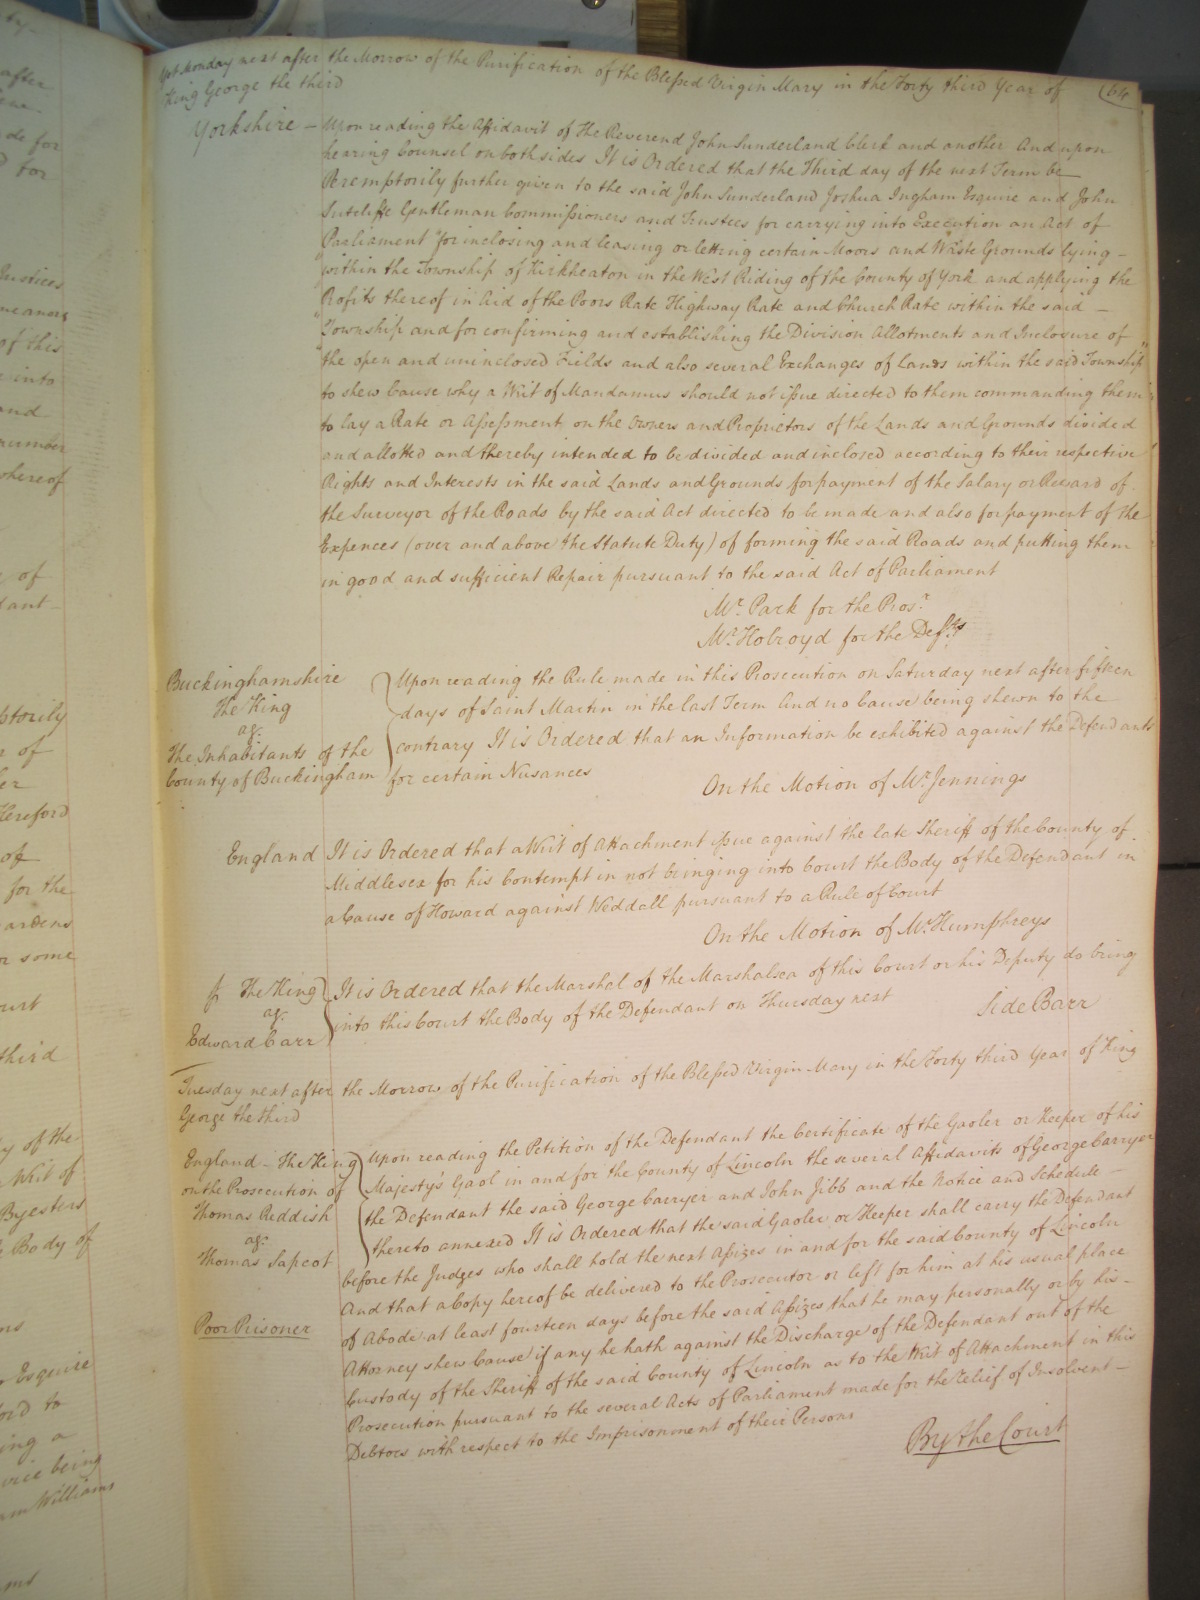 Yet Monday next after the Morrow of the Purification of the Blessed Virgin Mary in the Forty third Year of
King George the third
64
Yorkshire – Upon reading the Affidavit of The Reverend John Sunderland Clerk and another And upon
hearing Counsel on both sides It is Ordered that the Third day of the next Term be
Peremptorily further given to the said John Sunderland Joshua Ingham Esquire and John
Sutcliffe Gentleman Commissioners and Trustees for carrying into Execution an Act of
Parliament "for inclosing and leasing or letting certain Moors and Waste Grounds lying –
"within the Township of Kirkheaton in the West Riding of the County of York and applying the
"Profits thereof in Aid of the Poors Rate Highway Rate and Church Rate within the said –
"Township and for confirming and establishing the Division Allotments and Inclosure of
"the open and uninclosed Fields and also several Exchanges of Lands within the said Township"
to shew Cause why a Writ of Mandamus should not issue directed to them commanding them
to lay a Rate or Assessment on the Owners and Proprietors of the Lands and Grounds divided
and allotted and thereby intended to be divided and inclosed according to their respective
Rights and Interests in the said Lands and Grounds for payment of the Salary or Reward of
the Surveyor of the Roads by the said Act directed to be made and also for payment of the
Expences (over and above the Statute Duty) of forming the said Roads and putting them
in good and sufficient Repair pursuant to the said Act of Parliament
Mr. Park for the Pros.r
Mr. Holroyd for the Def.ts
Buckinghamshire
The King
ag.
The Inhabitants of the
County of Buckingham
Upon reading the Rule made in this Prosecution on Saturday next after fifteen
days of Saint Martin in the last Term And no Cause being shewn to the
contrary It is Ordered that an Information be exhibited against the Defendants
for certain Nusances
On the Motion of Mr. Jennings
England It is Ordered that a Writ of Attachment issue against the late Sheriff of the County of
Middlesex for his Contempt in not bringing into Court the Body of the Defendant in
a Cause of Howard against Weddall pursuant to a Rule of Court
On the Motion of Mr. Humphreys
The King
ag.
Edward Carr
It is Ordered that the Marshal of the Marshalsea of this Court or his Deputy do bring
into this Court the Body of the Defendant on Thursday next
Side Barr
Tuesday next after the Morrow of the Purification of the Blessed Virgin Mary in the Forty third Year of King
George the third
England – The King
on the Prosecution of
Thomas Reddish
ag.
Thomas Sapcot
Poor Prisoner
Upon reading the Petition of the Defendant the Certificate of the Gaoler or Keeper of his
Majesty's Gaol in and for the County of Lincoln the several Affidavits of George Carryer
the Defendant the said George Carryer and John Jibb and the Notice and Schedule –
thereto annexed It is Ordered that the said Gaoler or Keeper shall carry the Defendant
before the Judges who shall hold the next Assizes in and for the said County of Lincoln
And that a Copy hereof be delivered to the Prosecutor or left for him at his usual place
of Abode at least fourteen days before the said Assizes that he may personally or by his –
Attorney shew Cause if any he hath against the Discharge of the Defendant out of the
Custody of the Sheriff of the said County of Lincoln as to the Writ of Attachment in this
Prosecution pursuant to the several Acts of Parliament made for the Relief of Insolvent –
Debtors with respect to the Imprisonment of their Persons
By the Court